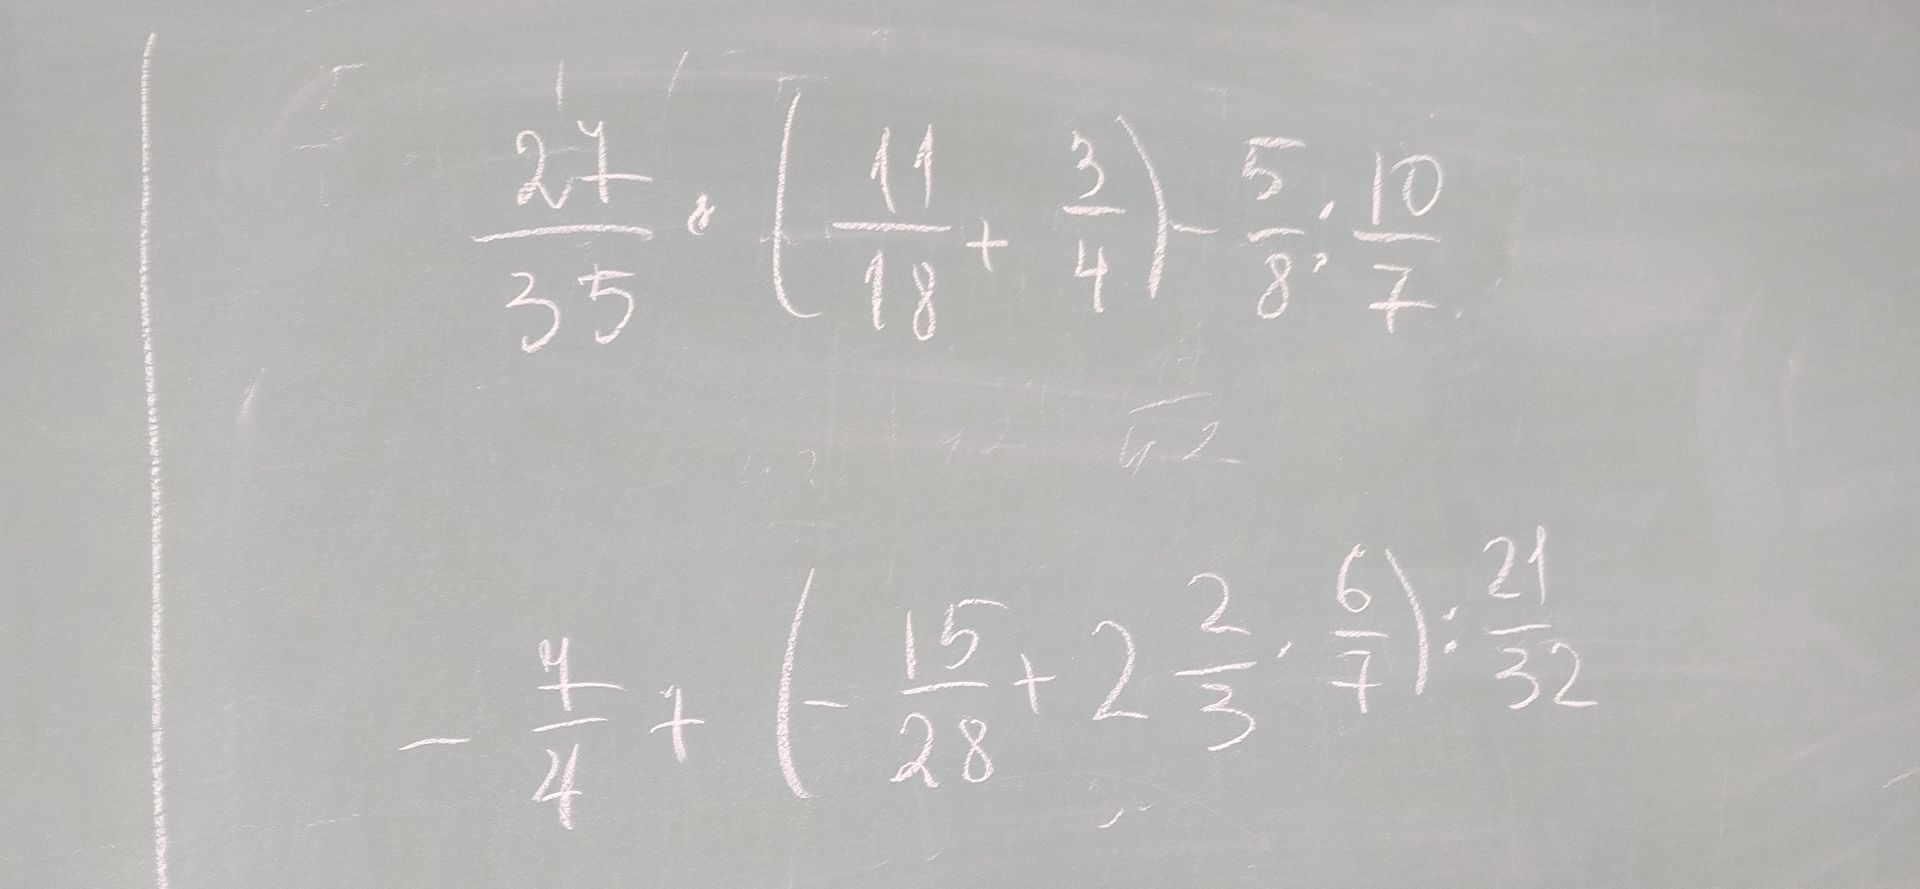 27/35 · (11/18 + 3/4) - 5/8 : 10/7
- 7/4 + (- 15/28 + 2 2/3 · 6/7) : 21/32